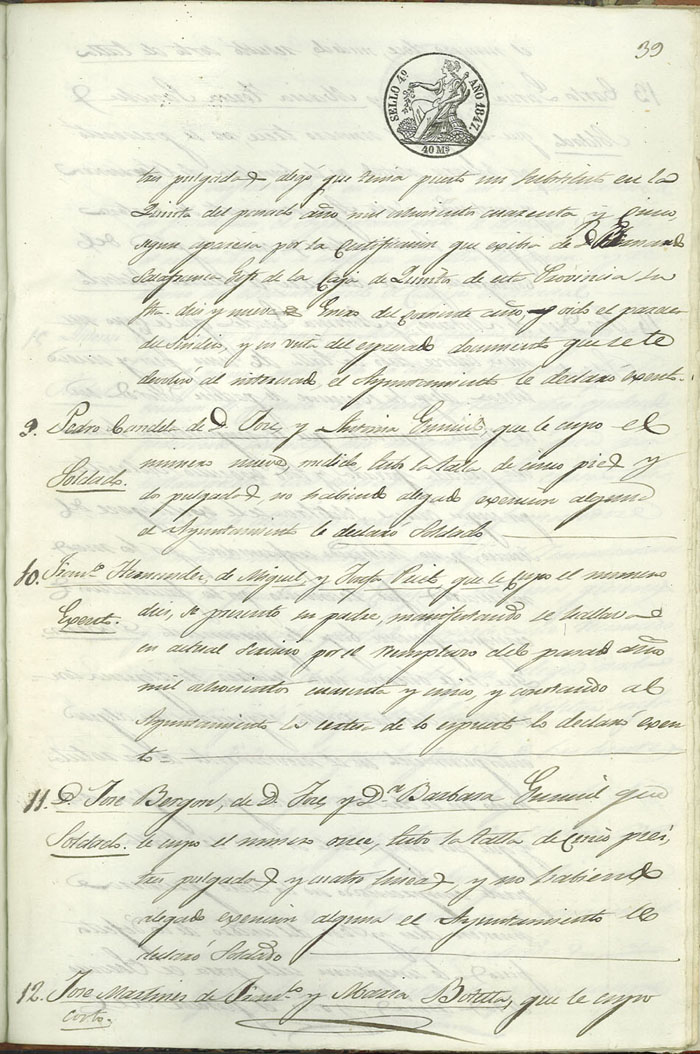 39
SELLO 4º AÑO 1847.
40 Ms
tres pulgadas, alegó que tenia puesto un substituto en la
Quinta del pasado año mil ochocientos cuarenta y cinco,
segun aparecia por la Certificacion que exibia de D.
Gefe de la Caja de Quintos de esta Provincia su
fha. diez y nueve Enero del corriente año, y oido el parecer
de Sindico, y en vista del espresado documento que se le
devolvió al interesado el Ayuntamiento le declaró exento.
9. Pedro Candela de D. Jose, y Antonia , que le cupo el
Soldado. numero nueve, medido, tubo la talla de cinco pies y
dos pulgadas, no habiendo alegado exencion alguna
el Ayuntamiento le declaró Soldado
10. Franco. Hernandez, de Miguel, y Josefa , que le cupo el numero
Exento. diez, se presentó su padre, manifestando se hallava
en actual servicio por el reemplazo del pasado año
mil ochocientos cuarenta y cinco, y constando al
Ayuntamiento la certeza de lo espuesto lo declaró exen-
to
11. D. Jose , de D. Jose y Da. Barbara que
Soldado. le cupo el numero once, tubo la talla de Cinco pies,
tres pulgadas y cuatro lineas, y no habiendo
alegado exencion alguna el Ayuntamiento le
declaró Soldado
12. Jose Martinez de Franco. y Maria Botella, que le cupo
Corto.